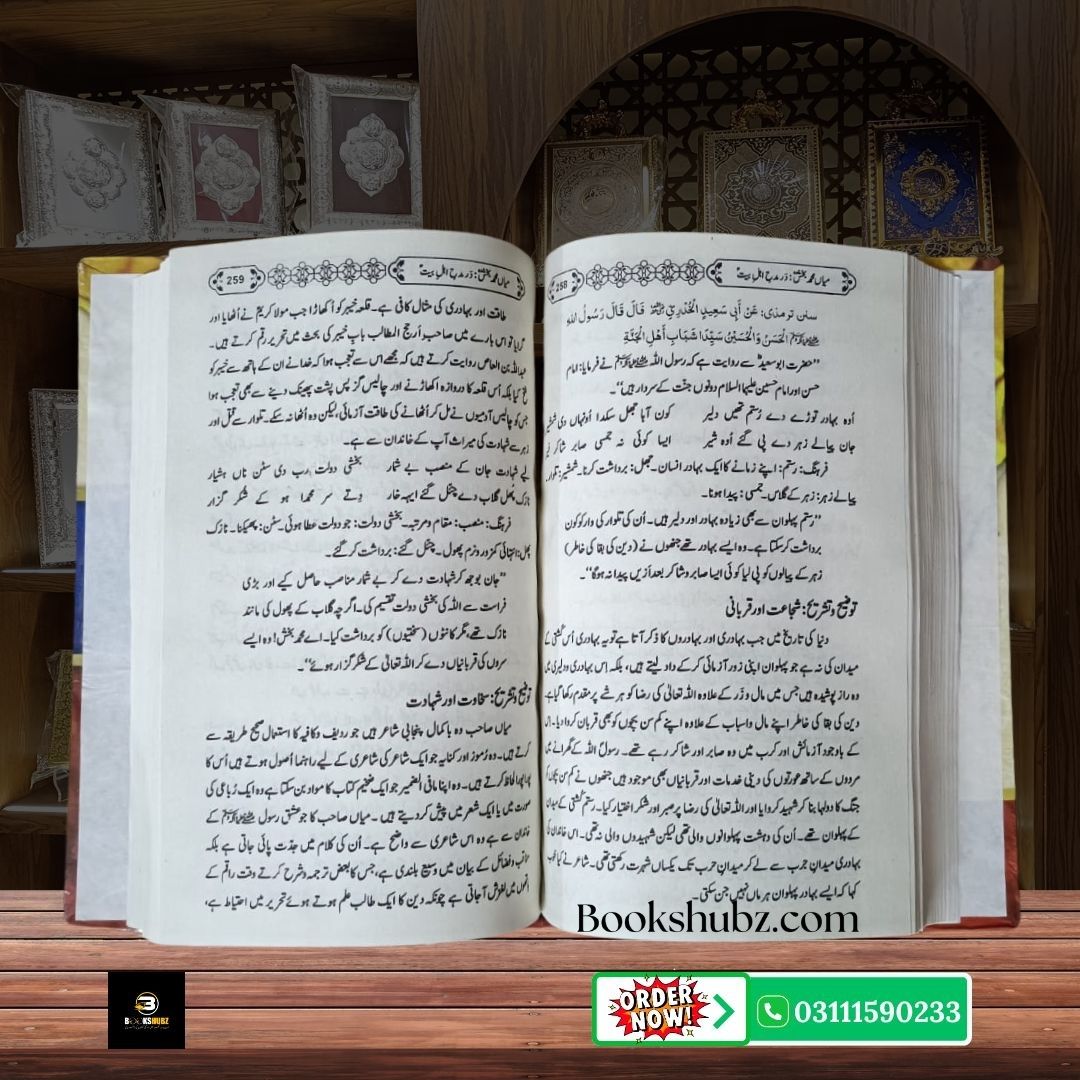 میاں محمد بخشؒ: دَر مدحِ اہلِ بیتؑ
258
سنی ترمذی: عَنْ أَبِي سَعِيدٍ الْخُدْرِيِّ قَالَ قَالَ رَسُولُ اللهِ
ﷺ الْحَسَنُ وَالْحُسَيْنُ سَيِّدَا شَبَابِ أَهْلِ الْجَنَّةِ
”حضرت ابوسعیدؓ سے روایت ہے کہ رسول اللہ ﷺ نے فرمایا: امام
حسن اور امام حسین علیہما السلام دونوں جنت کے سردار ہیں“۔
اوہ بہادر توڑے دے رُستم تھیں دلیر کون آہا جھل سکدا اُونہاں دی
جان پیالے زہر دے پی گئے اُوہ شیر ایسا کوئی نہ جمسی صابر شاکر
فرہنگ: رستم: اپنے زمانے کا ایک بہادر انسان۔ جھل: برداشت کرنا۔ شمشیر: تلوار۔
پیالے زہر: زہر کے گلاس۔ جمسی: پیدا ہونا۔
”رستم پہلوان سے بھی زیادہ بہادر اور دلیر ہیں۔ اُن کی تلوار کی وار کو کون
برداشت کر سکتا ہے۔ وہ ایسے بہادر تھے جنھوں نے (دین کی بقا کی خاطر)
زہر کے پیالوں کو پی لیا کوئی ایسا صابر و شاکر بعد اَزیں پیدا نہ ہوگا“۔
توضیح و تشریح: شجاعت اور قربانی
دنیا کی تاریخ میں جب بہادری اور بہادروں کا ذکر آتا ہے تو یہ بہادری اُس کُشتی کے
میدان کی نہ ہے جو پہلوان اپنی زور آزمائی کر کے داد لیتے ہیں، بلکہ اِس بہادری و دلیری میں
وہ راز پوشیدہ ہیں جس میں مال و زَر کے علاوہ اللہ تعالیٰ کی رضا کو ہر شے پر مقدم رکھا گیا ہے۔
دین کی بقا کی خاطر اپنے مال و اسباب کے علاوہ اپنے کم سن بچوں کو بھی قربان کروا دیا۔ اس
کے باوجود آزمائش اور کرب میں وہ صابر اور شاکر رہے تھے۔ رسولؐ اللہ کے گھرانے میں
مردوں کے ساتھ عورتوں کی دینی خدمات اور قربانیاں بھی موجود ہیں جنھوں نے کم سن بچوں کو
جنگ کا دولہا بنا کر شہید کروایا اور اللہ تعالیٰ کی رضا پر صبر اور شکر اختیار کیا۔ رستم کُشتی کے میدان
کے پہلوان تھے۔ اُن کی دہشت پہلوانوں والی تھی لیکن شہیدوں والی نہ تھی۔ اس خاندان کی
بہادری میدانِ حرب سے لے کر میدانِ حرب تک یکساں شہرت رکھتی تھی۔ شاعر نے کیا خوب
کہا کہ ایسے بہادر پہلوان ہر ماں نہیں جن سکتی۔
Bookshubz.com
میاں محمد بخشؒ: دَر مدحِ اہلِ بیتؑ
259
طاقت اور بہادری کی مثال کافی ہے۔ قلعہ خیبر کو اُکھاڑا جب مولا کریمؑ نے اُٹھایا اور
گرایا تو اس بارے میں صاحب اَرجح المطالب بابِ خیبر کی بحث میں تحریر رقم کرتے ہیں۔
عبداللہ بن العاص روایت کرتے ہیں کہ مجھے اس سے تعجب ہوا کہ خدا نے ان کے ہاتھ سے خیبر کو
فتح کیا بلکہ اُس قلعہ کا دروازہ اکھاڑنے اور چالیس گز پس پشت پھینک دینے سے بھی تعجب ہوا
جس کو چالیس آدمیوں نے مل کر اُٹھانے کی طاقت آزمائی، لیکن وہ اُٹھا نہ سکے۔ تلوار سے قتل اور
زہر سے شہادت کی میراث آپ کے خاندان سے ہے۔
لیے شہادت جان کے منصب بے شمار بخشی دولت رب دی سٹن ناں ہشیار
نازک پُھل گلاب دے چل گئے ایہہ خار دِتے سر محمدا ہو کے شکر گزار
فرہنگ: منصب: مقام و مرتبہ۔ بخشی دولت: جو دولت عطا ہوئی۔ سٹن: پھینکنا۔ نازک
پھل: انتہائی کمزور و نرم پھول۔ چل گئے: برداشت کر گئے۔
”جان بوجھ کر شہادت دے کر بے شمار مناصب حاصل کیے اور بڑی
فراست سے اللہ کی بخشی دولت تقسیم کی۔ اگرچہ گلاب کے پھول کی مانند
نازک تھے، مگر کانٹوں (سختیوں) کو برداشت کیا۔ اے محمد بخش! وہ ایسے
سروں کی قربانیاں دے کر اللہ تعالیٰ کے شکر گزار ہوئے“۔
توضیح و تشریح: سخاوت اور شہادت
میاں صاحب وہ باکمال پنجابی شاعر ہیں جو ردیف و کافیہ کا استعمال صحیح طریقہ سے
کرتے ہیں۔ وہ رُموز اور کنایہ جو ایک شاعر کی شاعری کے لیے راہنما اُصول ہوتے ہیں اُس کا
پورا پورا لحاظ کرتے ہیں۔ وہ اپنا مافی الضمیر جو ایک ضخیم کتاب کا مواد بن سکتا ہے وہ ایک رُباعی کی
صورت میں یا ایک شعر میں پیش کر دیتے ہیں۔ میاں صاحب کا جو عشق رسول ﷺ کے
خاندان سے ہے وہ اس شاعری سے واضح ہے۔ اُن کی کلام میں جدت پائی جاتی ہے بلکہ
مناقب و فضائل کے بیان میں وسیع بلندی ہے، جس کا بعض ترجمہ و شرح کرتے وقت راقم کے
ہاتھوں میں لغزش آ جاتی ہے چونکہ دین کا ایک طالب علم ہوتے ہوئے تحریر میں احتیاط ہے،
BOOKSHUBZ
ORDER NOW!
03111590233